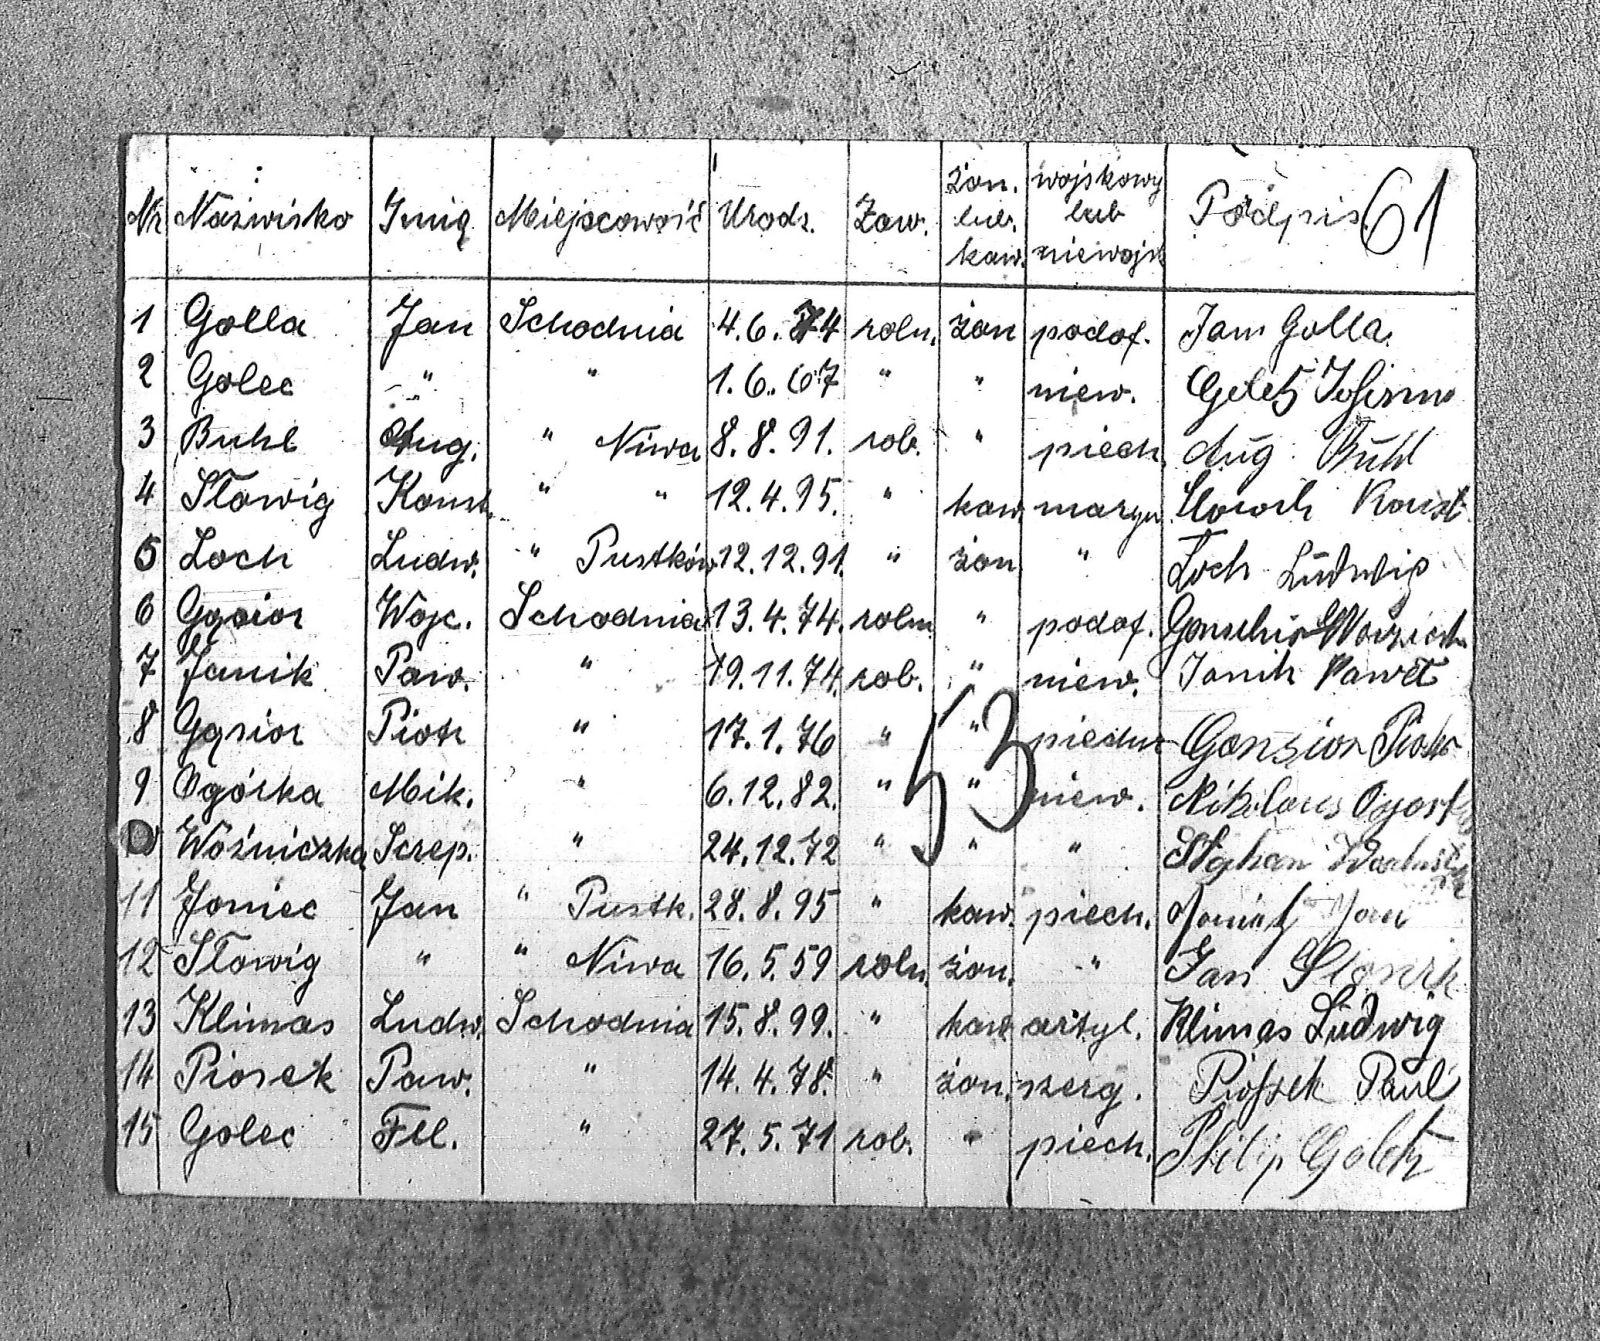 Nr Nazwisko Imię Miejscowość Urodz. Zaw. żon. lub. kaw. wojskowy lub niewojsk Podpis. 61
1 Golla Jan Schodnia 4.6.74 roln. żon podof. Jan Golla.
2 Golec " " 1.6.67 " " niew. Goletz Johann
3 Buhl Aug. " Niwa 8.8.91. rob. " piech. Aug Buhl
4 Słowig Konst. " " 12.4.95. " kaw. maryn. Konst
5 Loch Ludw. " Pustków 12.12.91. " żon " Loch Ludwig
6 Gąsior Wojc. Schodnia 13.4.74. roln " podof.
7 Janik Paw. " 19.11.74. rob. " niew. Janik Paweł
8 Gąsior Piotr " 17.1.76 " " Gonsior Piotr
9 Ogórka Mik. " 6.12.82. " " niew. Nikolaus Ogorka
10 Woźniczka Szcep. " 24.12.72 " " "
53
11 Joniec Jan " Pustk. 28.8.95 " kaw. piech. Jonietz Jan
12 Słowig " " Niwa 16.5.59 roln. żon. " Jan
13 Klimas Ludw. Schodnia 15.8.99. " kaw artyl. Klimas Ludwig
14 Piosek Paw. " 14.4.78. " żon. szerg. Piossek Paul
15 Golec Fil. " 27.5.71 rob. " piech. Philip Goletz